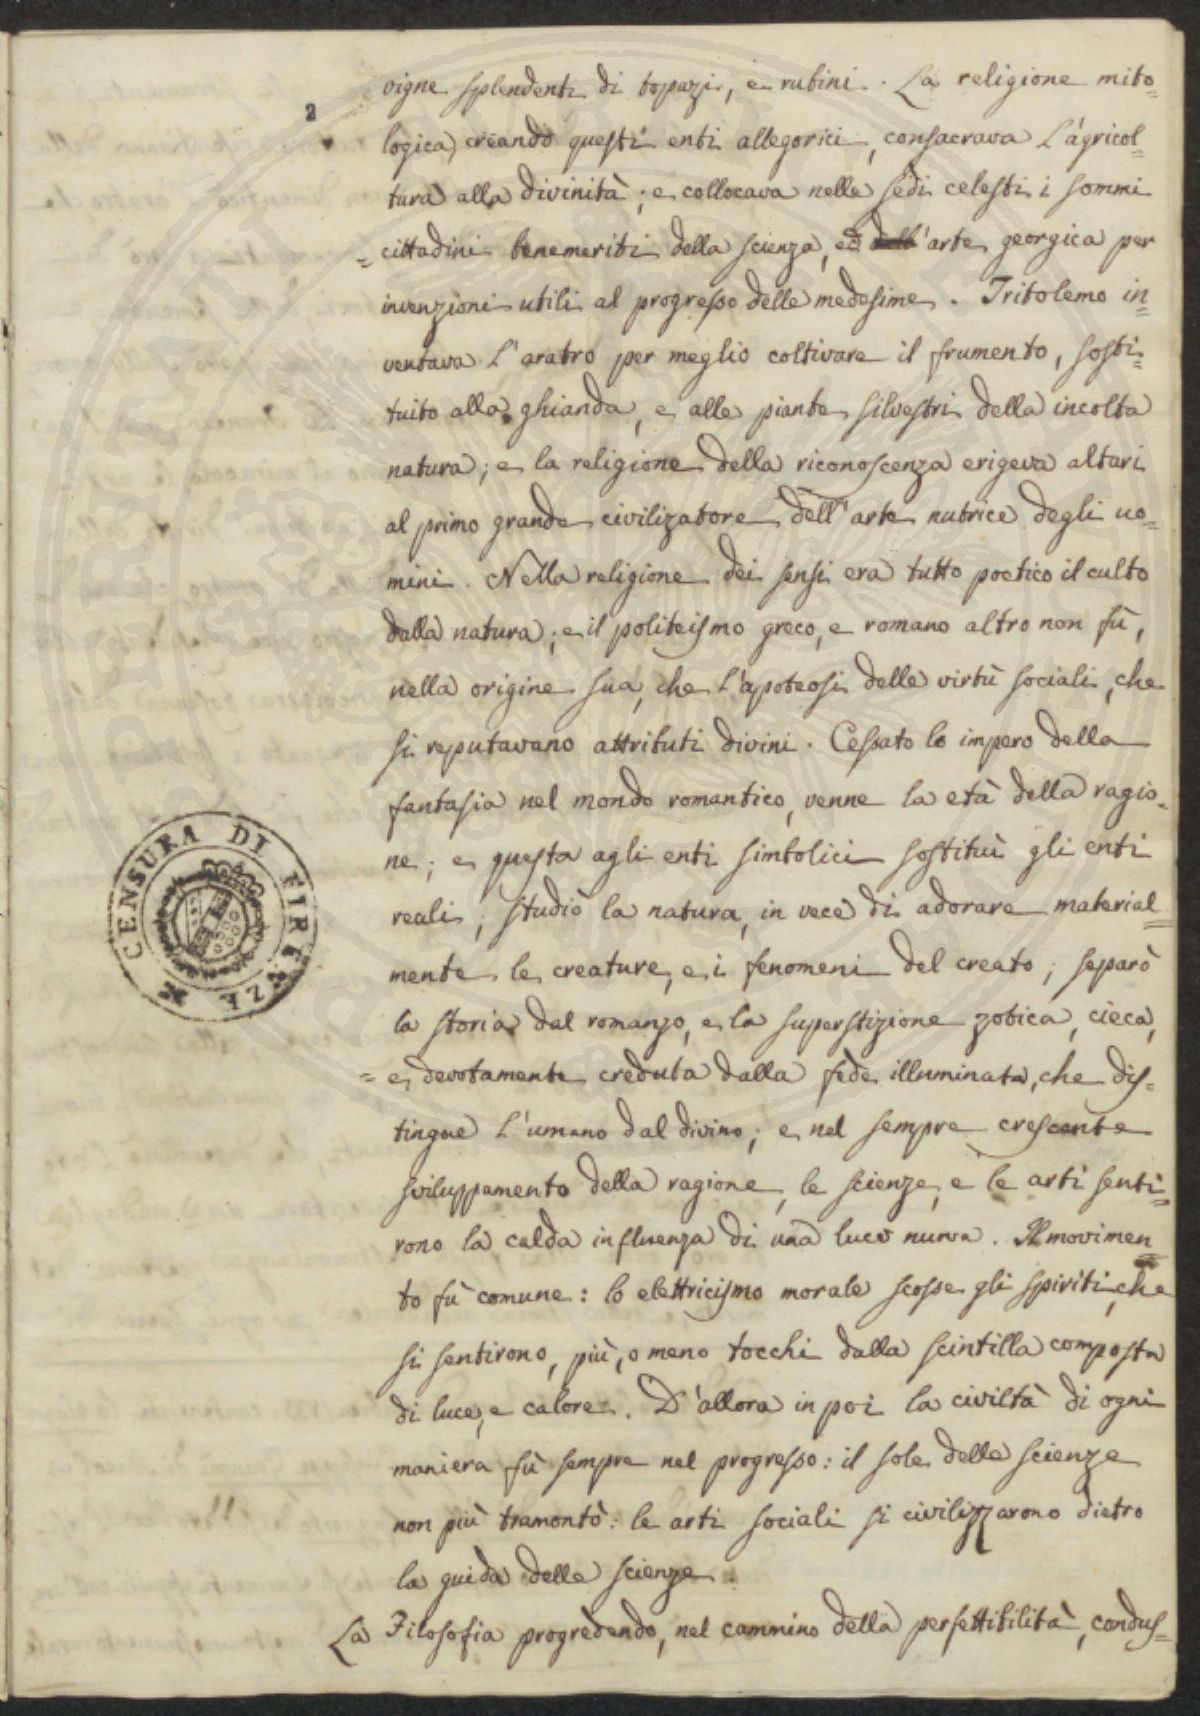 2
vigne splendenti di topazi, e rubini. La religione mito=
logica, creando questi enti allegorici, consacrava l'agricol=
tura alla divinità; e collocava nelle sedi celesti i sommi
= cittadini benemeriti della scienza, ed dell'arte georgica per
invenzioni utili al progresso delle medesime. Tritolemo in=
ventava l'aratro per meglio coltivare il frumento, sosti=
tuito alla ghianda, e alle piante silvestri della incolta
natura; e la religione della riconoscenza erigeva altari
al primo grande civilizatore dell'arte nutrice degli uo=
mini. Nella religione dei sensi era tutto poetico il culto
dalla natura; e il politeismo greco, e romano altro non fù,
nella origine sua, che l'apoteosi delle virtù sociali, che
si reputavano attributi divini. Cessato lo impero della
fantasia nel mondo romantico, venne la età della ragio=
ne; e questa agli enti simbolici sostituì gli enti
reali; studiò la natura, in vece di adorare material=
mente le creature, e i fenomeni del creato; separò
la storia dal romanzo, e la superstizione zotica, cieca,
= e devotamente creduta dalla fede illuminata, che dis=
tingue l'umano dal divino; e nel sempre crescente
sviluppamento della ragione, le scienze, e le arti senti=
rono la calda influenza di una luce nuova. Il movimen=
to fù comune: lo elettricismo morale scosse gli spiriti, che
si sentirono, più, o meno tocchi dalla scintilla composta
di luce, e calore. D'allora in poi la civiltà di ogni
maniera fù sempre nel progresso: il sole delle scienze
non più tramontò: le arti sociali si civilizzarono dietro
la guida delle scienze.
La Filosofia progredendo, nel cammino della perfettibilità, condus=
CENSURA DI FIRENZE